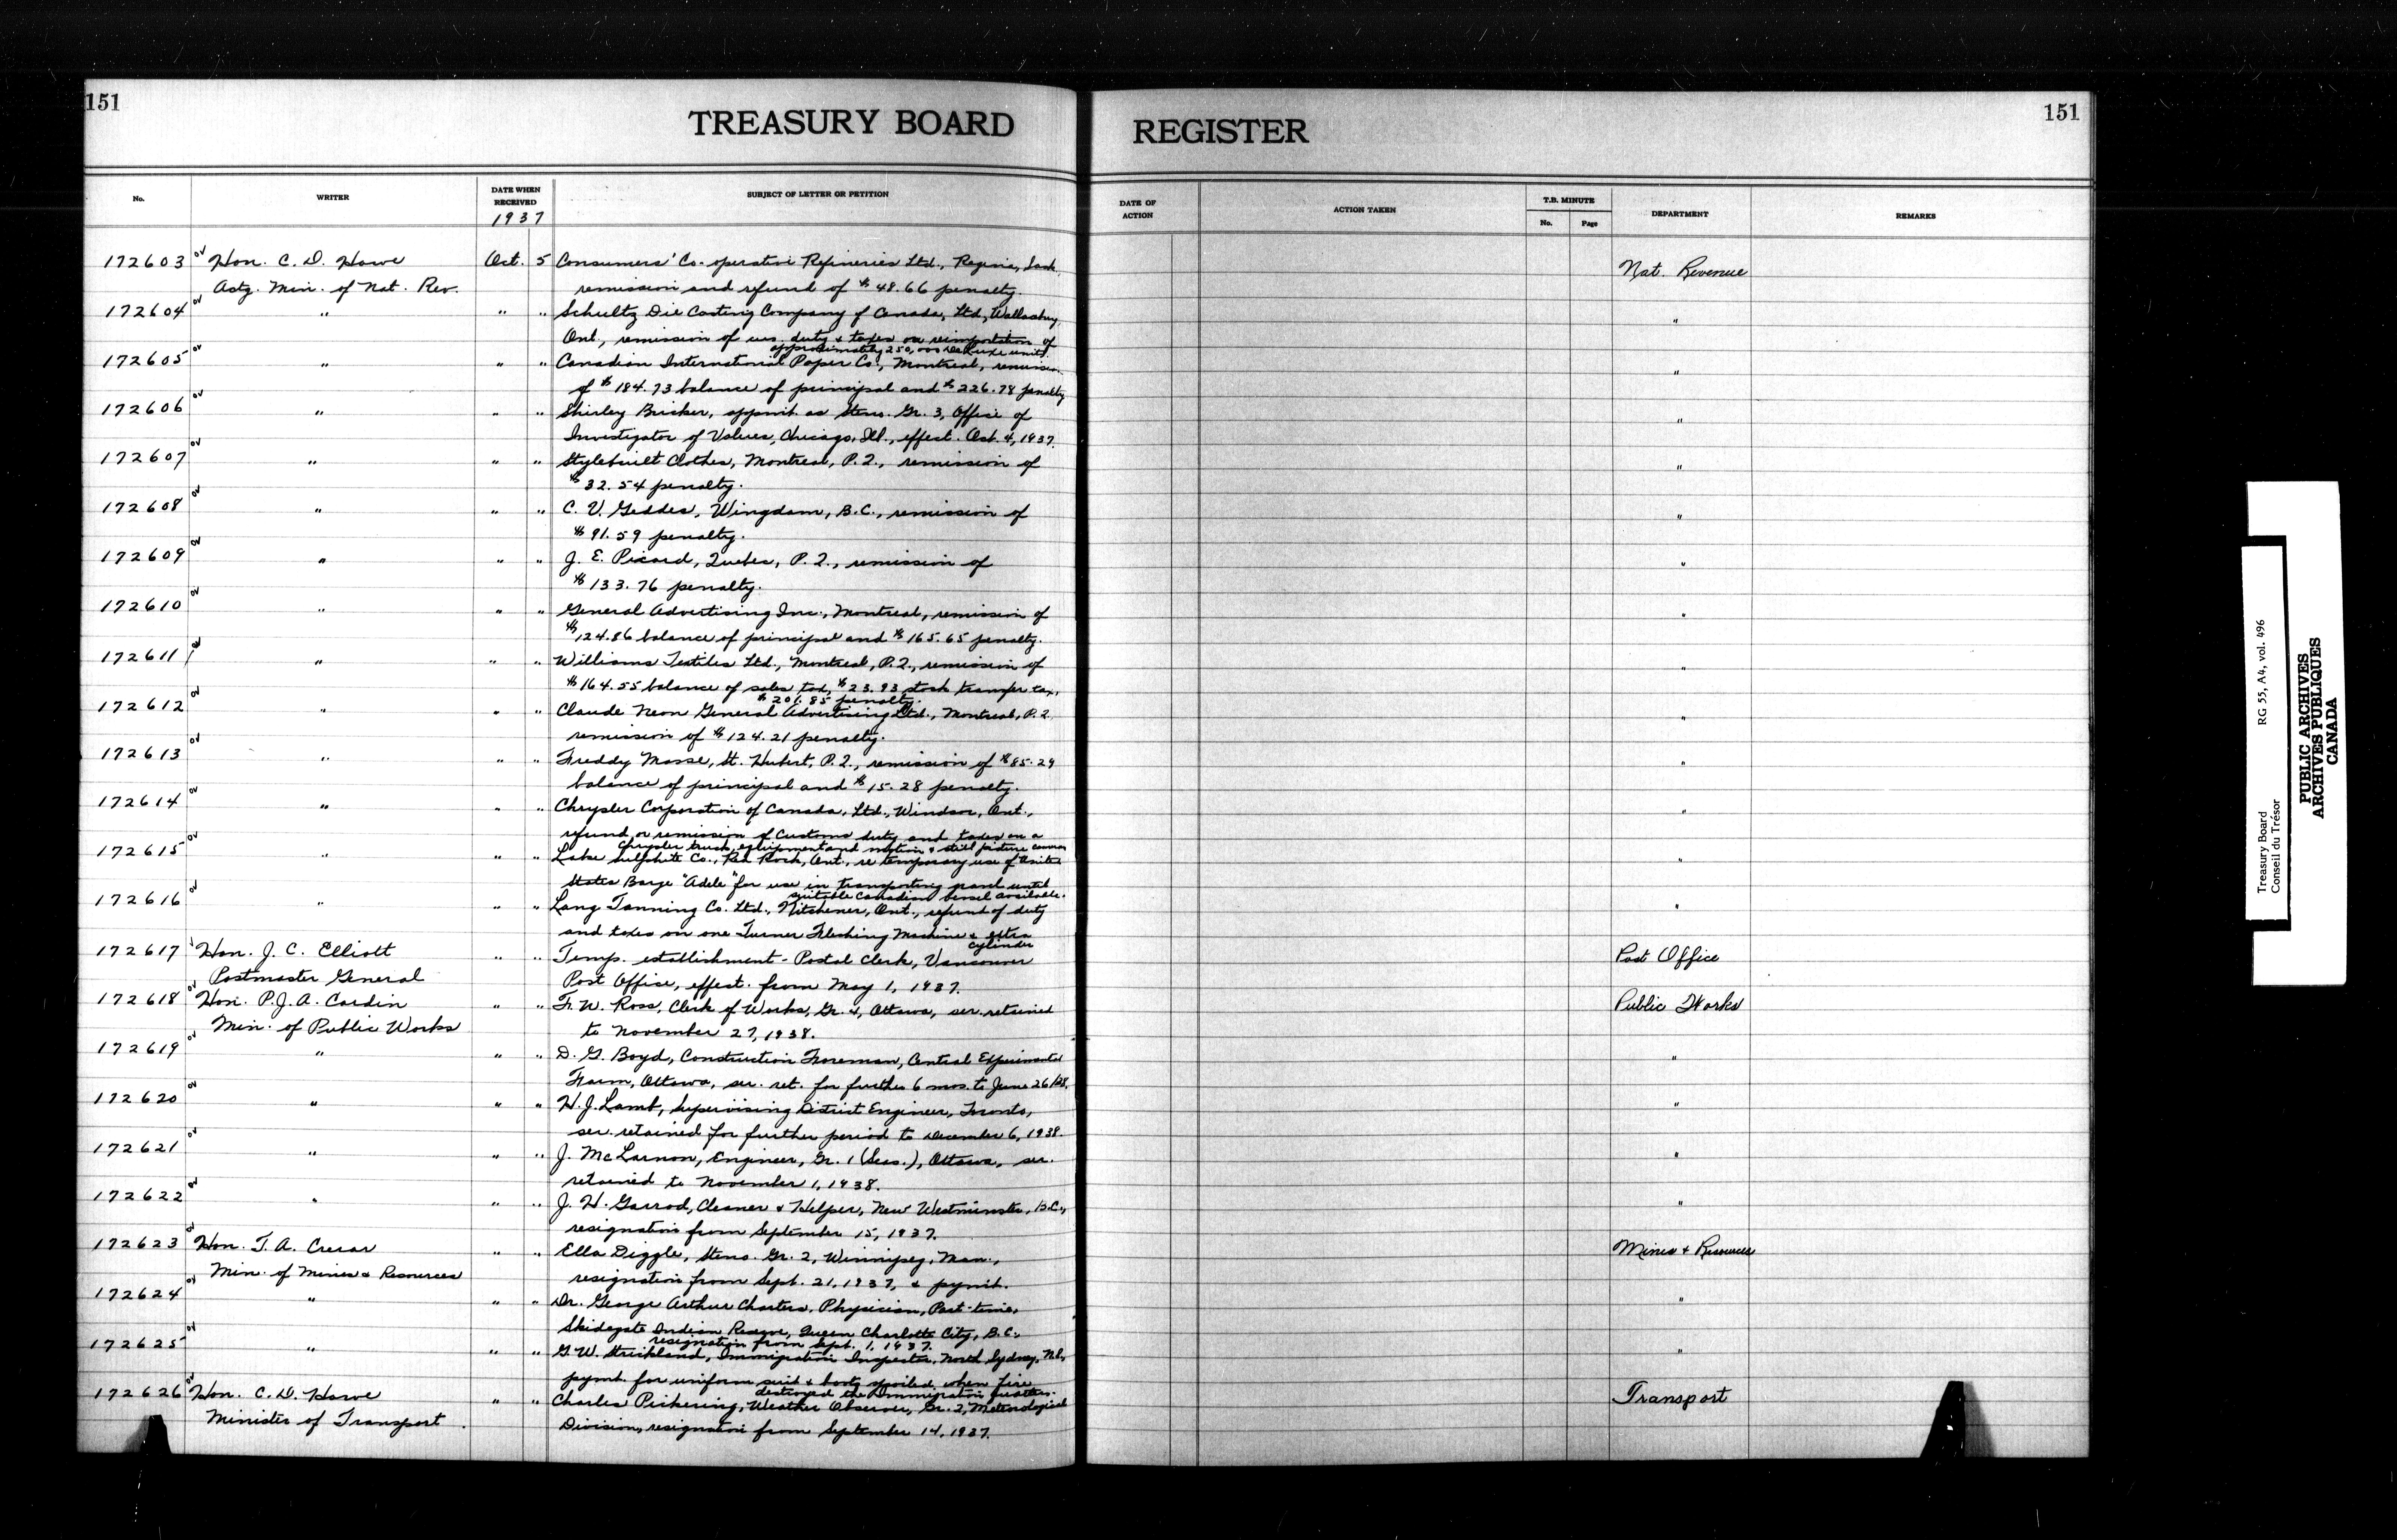 151
TREASURY BOARD REGISTER
151
No. WRITER DATE WHEN RECEIVED SUBJECT OF LETTER OR PETITION DATE OF ACTION ACTION TAKEN T.B. MINUTE No. Page DEPARTMENT REMARKS
1937
172603 ov Hon. C. D. Howe Oct. 5 Consumers' Co-operative Refineries Ltd., Regina, Sask. Nat. Revenue
Actg. Min. of Nat. Rev. remission and refund of $48.66 penalty.
172604 ov " " " Schultz Die Casting Company of Canada, Ltd., Wallaceburg, "
Ont., remission of duty & taxes on reimportation of
approximately 250,000 DeLuxe units.
172605 ov " " " Canadian International Paper Co., Montreal, remission "
of $184.73 balance of principal and $226.78 penalty
172606 ov " " " Shirley Bricker, appmt. as Steno. Gr. 3, Office of "
Investigator of Values, Chicago, Ill., effect. Oct. 4, 1937.
172607 ov " " " Stylebuilt Clothes, Montreal, P.Q., remission of "
$32.54 penalty.
172608 ov " " " C. V. Geddes, Wingdam, B.C., remission of "
$91.59 penalty.
172609 ov " " " J. E. Picard, Quebec, P.Q., remission of "
$133.76 penalty.
172610 ov " " " General Advertising Inc., Montreal, remission of "
$124.86 balance of principal and $165.65 penalty.
172611 ov " " " Williams Textiles Ltd., Montreal, P.Q., remission of "
$164.55 balance of sales tax, $23.93 stock transfer tax,
$201.85 penalty.
172612 ov " " " Claude Neon General Advertising Ltd., Montreal, P.Q. "
remission of $124.21 penalty.
172613 ov " " " Freddy Masse, St. Hubert, P.Q., remission of $85.29 "
balance of principal and $15.28 penalty.
172614 ov " " " Chrysler Corporation of Canada, Ltd., Windsor, Ont., "
refund or remission of Customs duty and taxes on a
Chrysler truck, equipment and motion & still picture camera
172615 ov " " " Lake Sulphite Co., Red Rock, Ont., re temporary use of United "
States Barge "Adele" for use in transporting until
suitable Canadian vessel available.
172616 ov " " " Lang Tanning Co. Ltd., Kitchener, Ont., refund of duty "
and taxes on one Turner Fleshing Machine & extra
cylinder
172617 Hon. J. C. Elliott " " Temp. establishment - Postal Clerk, Vancouver Post Office
Postmaster General Post Office, effect. from May 1, 1937.
172618 ov Hon. P.J.A. Cardin " " F. W. Ross, Clerk of Works, Gr. 4, Ottawa, ser. retained Public Works
Min. of Public Works to November 27, 1938.
172619 ov " " " D. G. Boyd, Construction Foreman, Central Experimental "
Farm, Ottawa, ser. ret. for further 6 mos. to June 26/38.
172620 ov " " " H. J. Lamb, Supervising District Engineer, Toronto, "
ser. retained for further period to December 6, 1938.
172621 ov " " " J. McLarnon, Engineer, Gr. 1 (Seas.), Ottawa, ser. "
retained to November 1, 1938.
172622 ov " " " J. H. Garrod, Cleaner & Helper, New Westminster, B.C., "
resignation from September 15, 1937.
172623 ov Hon. T. A. Crerar " " Ella Diggle, Steno. Gr. 2, Winnipeg, Man., Mines & Resources
Min. of Mines & Resources resignation from Sept. 21, 1937, & pymt.
172624 ov " " " Dr. George Arthur Charters, Physician, Part-time, "
Skidegate Indian Reserve, Queen Charlotte City, B.C.,
resignation from Sept. 1, 1937.
172625 ov " " " G. W. Strickland, Immigration Inspector, North Sydney, N.S., "
pymt. for uniform suit & boots spoiled when fire
destroyed the Immigration quarters.
172626 ov Hon. C. D. Howe " " Charles Pickering, Weather Observer, Gr. 2, Meteorological Transport
Minister of Transport Division, resignation from September 14, 1937.
Treasury Board RG 55, A4, vol. 496
Conseil du Trésor
PUBLIC ARCHIVES
ARCHIVES PUBLIQUES
CANADA